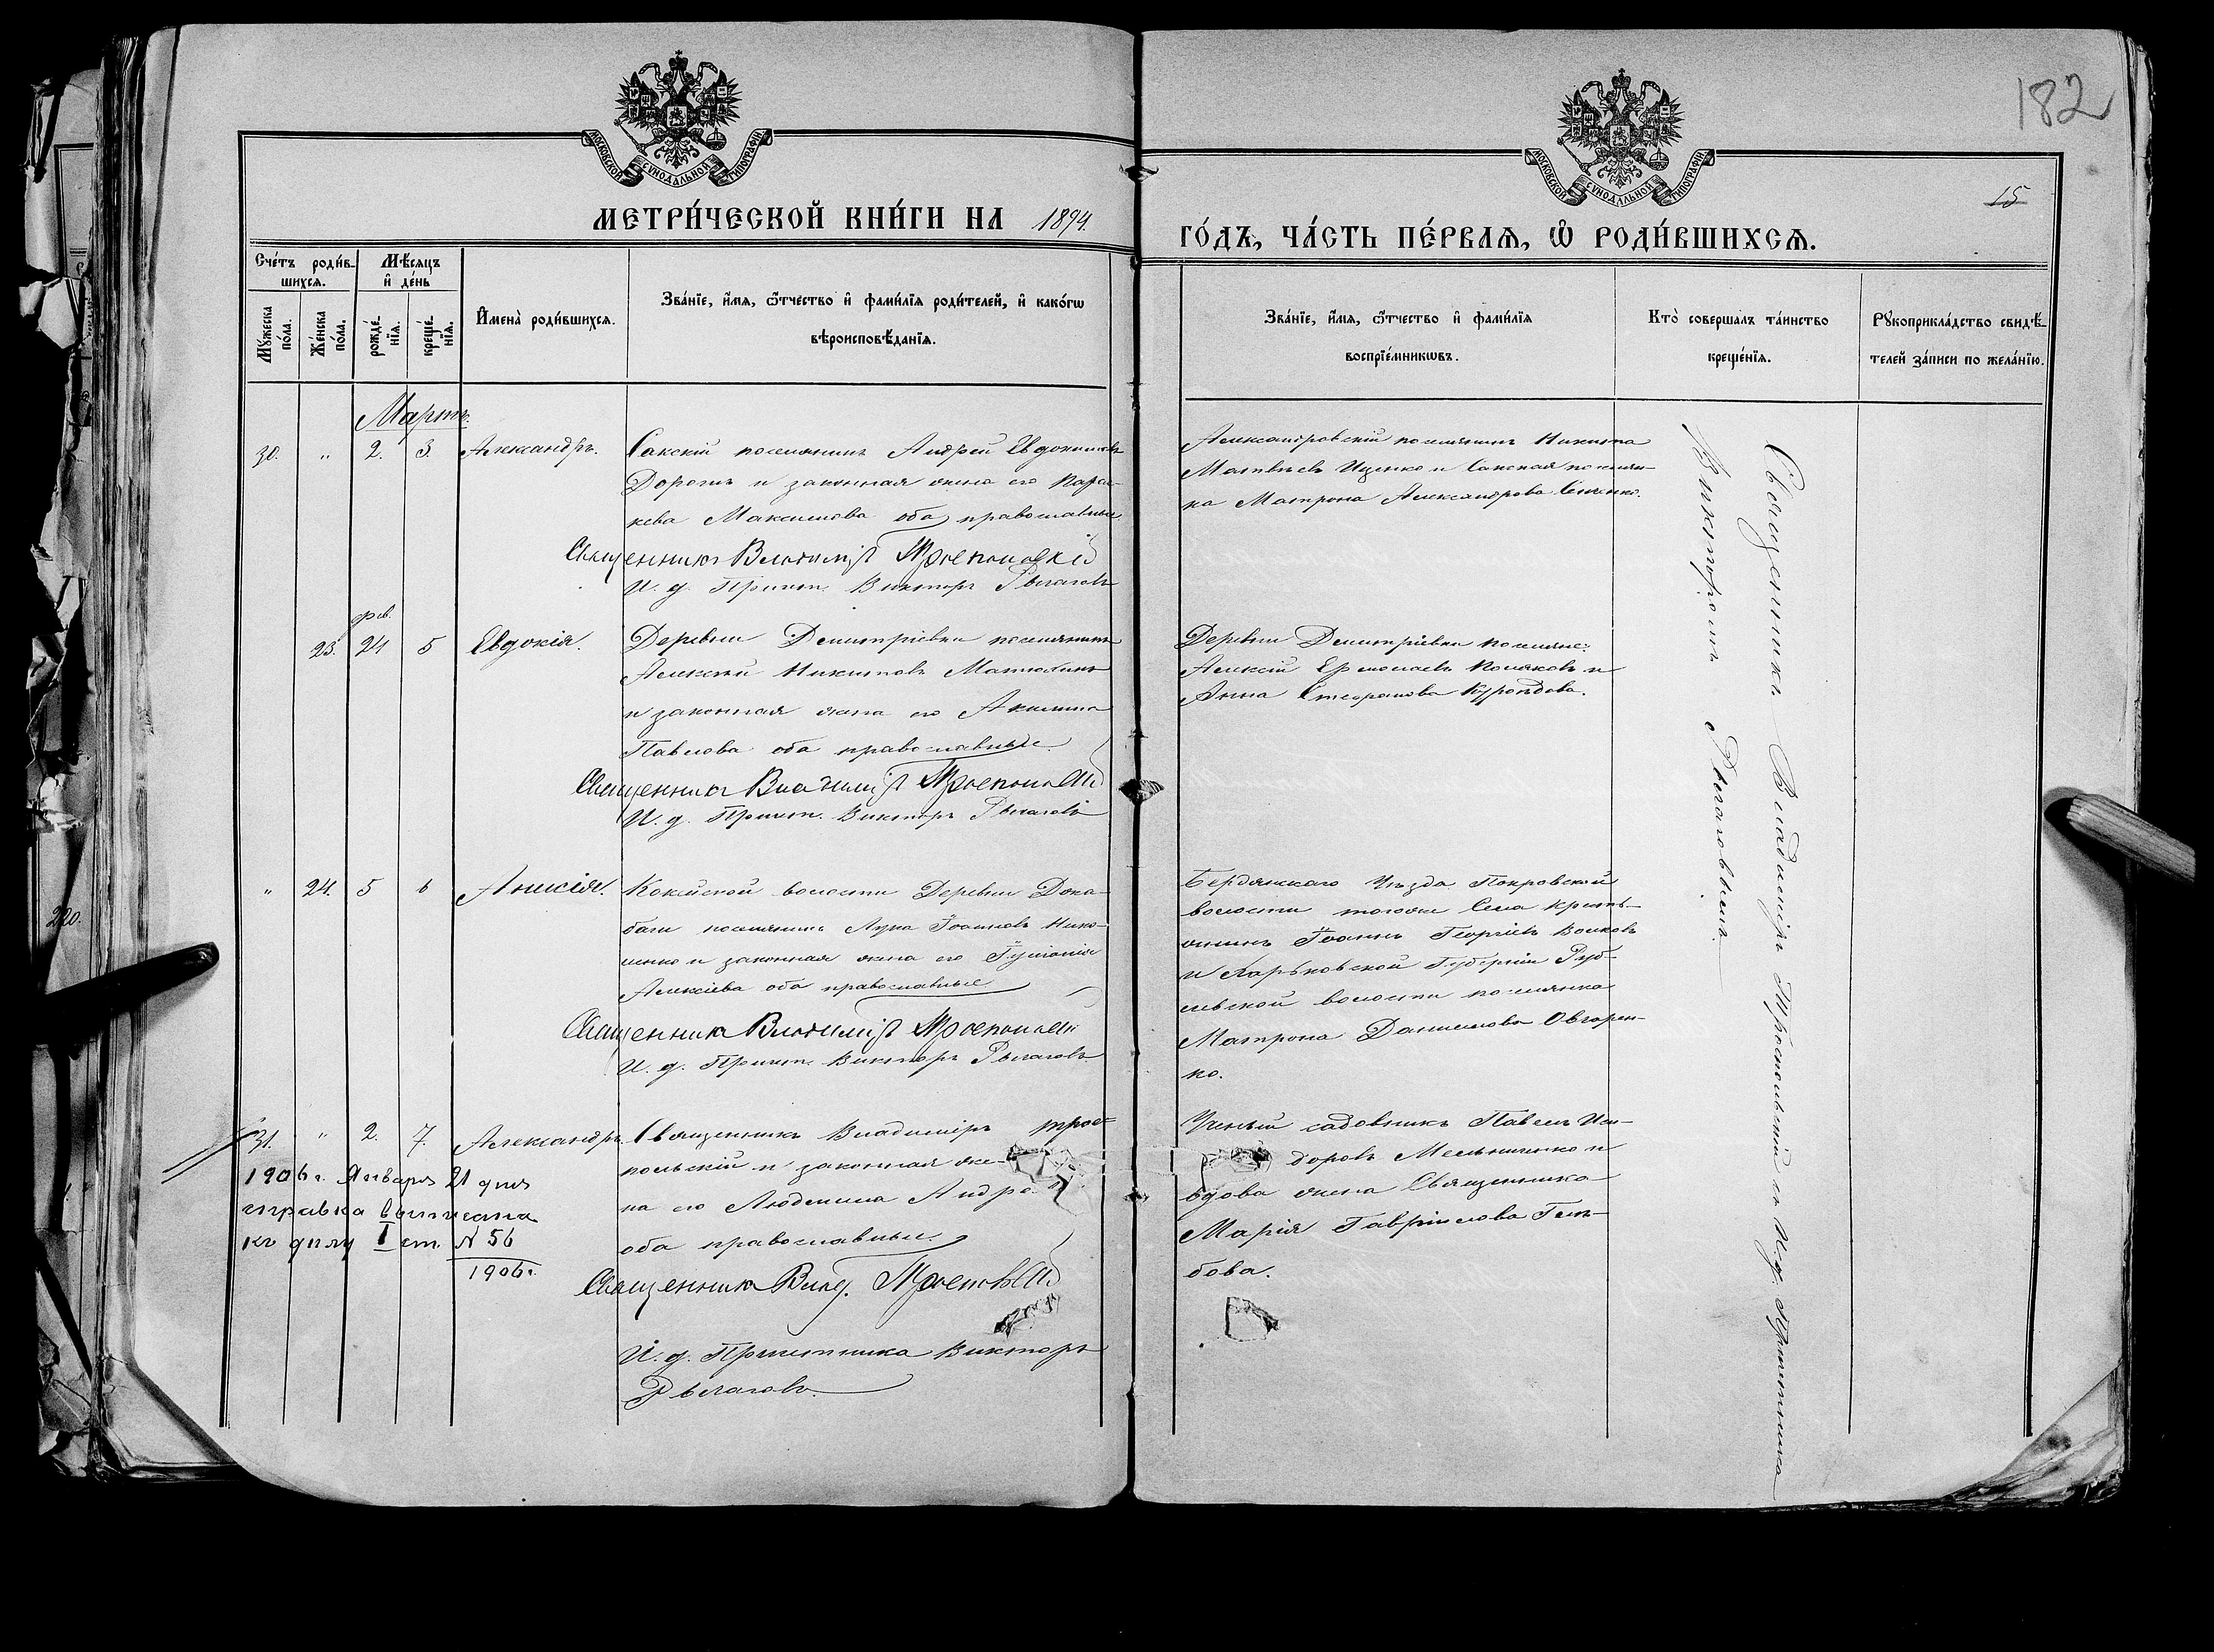 182
МОСКОВСКОЙ СѴНОДАЛЬНОЙ ТИПОГРАФІИ
МОСКОВСКОЙ СѴНОДАЛЬНОЙ ТИПОГРАФІИ
15
МЕТРИ́ЧЕСКОЙ КНИ́ГИ НА 1894.
ГО́ДЪ, ЧА́СТЬ ПЕ́РВАѦ, Ѽ РОДИ́ВШИХСѦ.
Сче́тъ роди́вшихсѧ.
Мѣ́сяцъ и҆ де́нь
Мꙋ́жеска по́ла.
Же́нска по́ла.
рожде́нїѧ.
креще́нїѧ.
И҆мена̀ роди́вшихсѧ.
Зва́нїе, и҆́мѧ, ѻ҆́тчество и҆ фами́лїѧ роди́телей, и҆ како́гѡ
вѣроисповѣ́данїѧ.
Зва́нїе, и҆́мѧ, ѻ҆́тчество и҆ фами́лїѧ
воспрїе́мникѡвъ.
Кто̀ соверша́лъ та́инство
креще́нїѧ.
Рꙋкоприкла́дство свидѣ́-
телей за́писи по жела́нїю.
Мартъ.
30. " 2. 3. Александръ.
Сакскій поселянинъ Андрей Евдокимовъ
и законная жена его Парас-
кева Максимова оба православные
Священникъ Владиміръ Троепольскій
И. д. Причет. Викторъ Рыгаловъ
Александровскій поселянинъ Никита
Матвѣевъ Иценко и Сакская поселян-
ка Матрона Александрова
фев.
23. 24 5 Евдокія.
Деревни Димитріевки поселянинъ
Алексѣй Никитовъ
и законная жена его Акилина
Павлова оба православные
Священникъ Владиміръ Троепольскій
И. д. Причет. Викторъ Рыгаловъ
Деревни Димитріевки поселяне:
Алексій Ермолаевъ Поляковъ и
Анна Стефанова Куроѣдова.
" 24. 5 6 Анисія.
волости Деревни Дока-
баги поселянинъ Лука Іоанновъ Нико-
ленко и законная жена его
Алексіева оба православные
Священникъ Владиміръ Троепольскій
И. д. Причет. Викторъ Рыгаловъ
Бердянскаго Уѣзда Покровской
волости тогоже Села кресть-
янинъ Іоаннъ Георгіевъ Волковъ
и Харьковской Губерніи Руб-
левской волости поселянка
Матрона Даниилова Овчарен-
ко.
31. " 2. 7. Александръ
Священникъ Владиміръ Трое-
польскій и законная же-
на его Людмила Андре
оба православные.
Священникъ Влад. Троепольскій
И. д. Причетника Викторъ
Рыгаловъ.
Ученый садовникъ Павелъ Иси-
доровъ Мельниченко и
вдова жена Священника
Марія Гавріилова Глѣ-
бова.
1906 г. Января 21 дня
справка выписана
къ дѣлу I ст. № 56
1906 г.
Священникъ Владиміръ Троепольскій съ И. д. Причетника
Викторомъ Рыгаловымъ.
220.